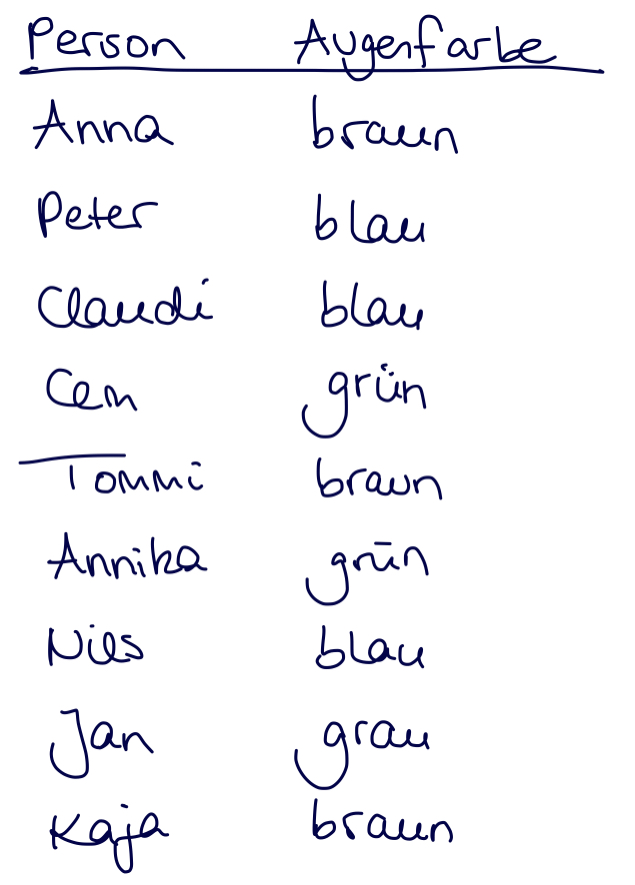 Person Augenfarbe
Anna braun
Peter blau
Claudi blau
Cem grün
Tommi braun
Annika grün
Nils blau
Jan grau
Kaja braun